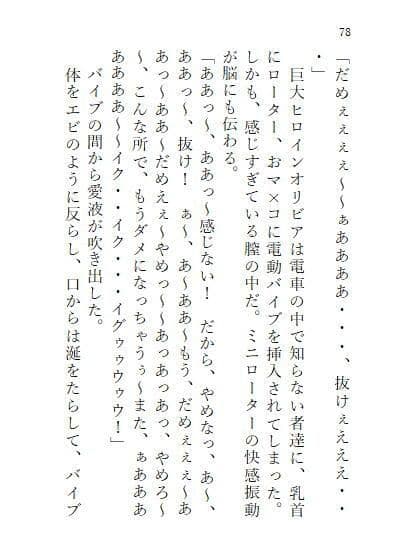 78
「だめぇぇぇぇ～～ぁああああ・・・、抜けぇえええ・・
・」
　巨大ヒロインオリビアは電車の中で知らない者達に、乳首
にローター、おマ×コに電動バイブを挿入されてしまった。
しかも、感じすぎている膣の中だ。ミニローターの快感振動
が脳にも伝わる。
「ああっ～、ああっ～感じない！　だから、やめなっ、あ～、
ああっ～、抜け！　ぁ～、あ～ああ～もう、だめぇぇぇ～あ
あっ～ああ～だめえぇ～やめっ～～あっあっあっ、やめろ～
～、こんな所で、もうダメになっちゃうぅ～また、ぁあああ
ああああ～～イク・・イク・・・イグゥゥウゥウ！」
　バイブの間から愛液が吹き出した。
　体をエビのように反らし、口からは涎をたらして、バイブ